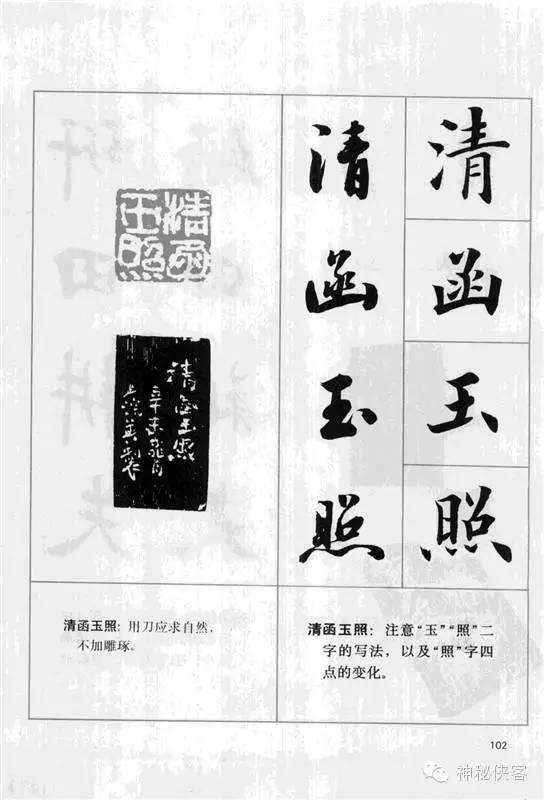 清函玉照
清函玉照
清函
玉照
清函玉照
辛未
清函玉照：用刀应求自然，
不加雕琢。
清函玉照：注意“玉”“照”二
字的写法，以及“照”字四
点的变化。
102
神秘侠客